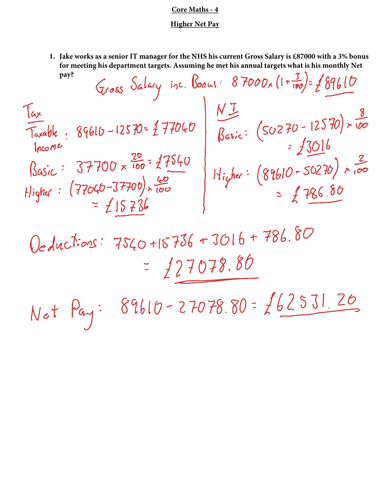 Core Maths - 4
Higher Net Pay
1. Jake works as a senior IT manager for the NHS his current Gross Salary is £87000 with a 3% bonus
for meeting his department targets. Assuming he met his annual targets what is his monthly Net
pay?
Gross Salary inc. Bonus: 87000×(1+3/100)=£89610
Tax
Taxable Income: 89610-12570=£77040
Basic: 37700×20/100=£7540
Higher: (77040-37700)×40/100
=£15736
NI
Basic: (50270-12570)×8/100
=£3016
Higher: (89610-50270)×2/100
=£786.80
Deductions: 7540+15736+3016+786.80
=£27078.80
Net Pay: 89610-27078.80=£62531.20